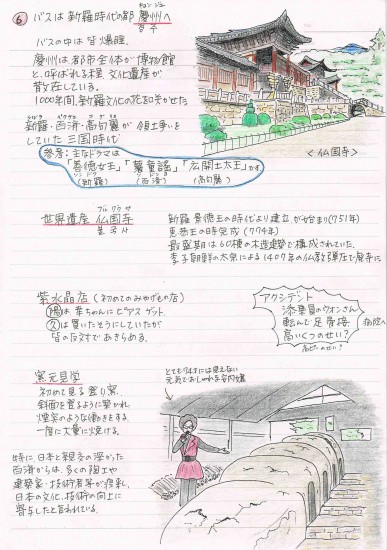 ⑥ バスは新羅時代の都 慶州へ
キョンジュ
경주
バスの中は皆爆睡。
慶州は都市全体が博物館
と、呼ばれる程 文化遺産が
散在している。
1000年間、新羅文化の花を咲かせた
新羅・百済・高句麗が 領土争いを
していた三国時代
参考:主なドラマは
「善徳女王」「薯童謡」「広開土太王」
(新羅) (百済) (高句麗)
<仏国寺>
世界遺産 仏国寺
プルグクサ
불국사
新羅 景徳王の時代より建立が始まり(751年)
恵恭王の時完成(774年)
最盛期は60棟の木造建築で構成されていた。
李子朝鮮の太宗による1407年の仏教弾圧で廃寺に
紫水晶店(初めてのみやげもの店)
陽は幸ちゃんにピアスゲット。
久は買いたそうにしていたが
皆の反対であきらめる。
アクシデント
添乗員のウォンさん
転んで足骨接
高いくつのせい?
病院へ
窯元見学
初めて見る登り窯。
斜面を登るように築かれ
煙突のような働きをする
一度に大量に焼ける。
とても74才には見えない
元気でおしゃれな案内嬢
特に、日本と親交の深かった
百済からは、多くの陶工や
建築家・技術者等が渡来し
日本の文化、技術の向上に
寄与したと言われている。